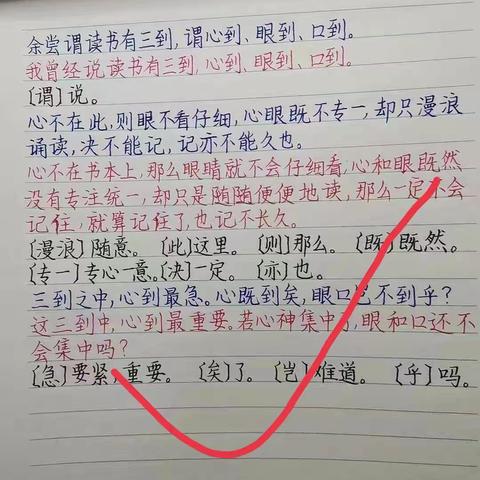 余尝谓读书有三到,谓心到、眼到、口到。
我曾经说读书有三到,心到、眼到、口到。
〔谓〕说。
心不在此,则眼不看仔细,心眼既不专一,却只漫浪
诵读,决不能记,记亦不能久也。
心不在书本上,那么眼睛就不会仔细看,心和眼既然
没有专注统一,却只是随随便便地读,那么一定不会
记住,就算记住了,也记不长久。
〔漫浪〕随意。〔此〕这里。〔则〕那么。〔既〕既然。
〔专一〕专心一意。〔决〕一定。〔亦〕也。
三到之中,心到最急。心既到矣,眼口岂不到乎?
这三到中,心到最重要。若心神集中了,眼和口还不
会集中吗?
〔急〕要紧,重要。〔矣〕了。〔岂〕难道。〔乎〕吗。